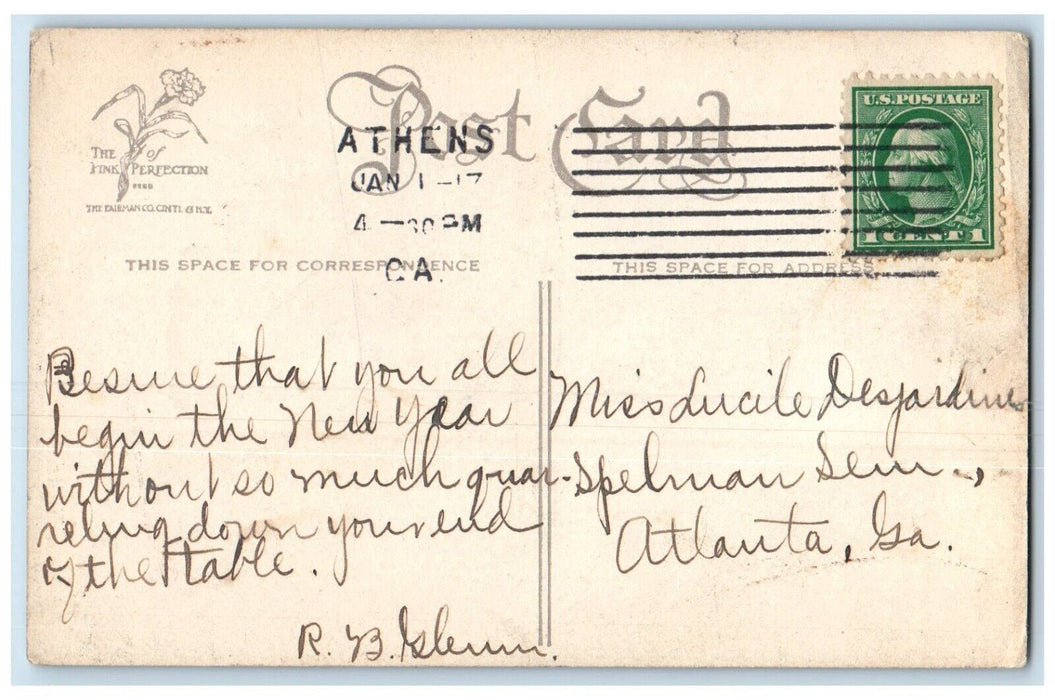 THE of
PINK PERFECTION
THE FAIRMAN CO. CIN'TI. & N.Y.
Post Card
U.S.POSTAGE
1 CENT 1
ATHENS
JAN 1 -17
4 -30 PM
GA.
THIS SPACE FOR CORRESPONDENCE
THIS SPACE FOR ADDRESS
Besure that you all
begin the New Year
without so much quar-
reling down your end
of the table.
R. B. Glenn.
Miss Lucile Desjardines
Spelman Sem.,
Atlanta, Ga.